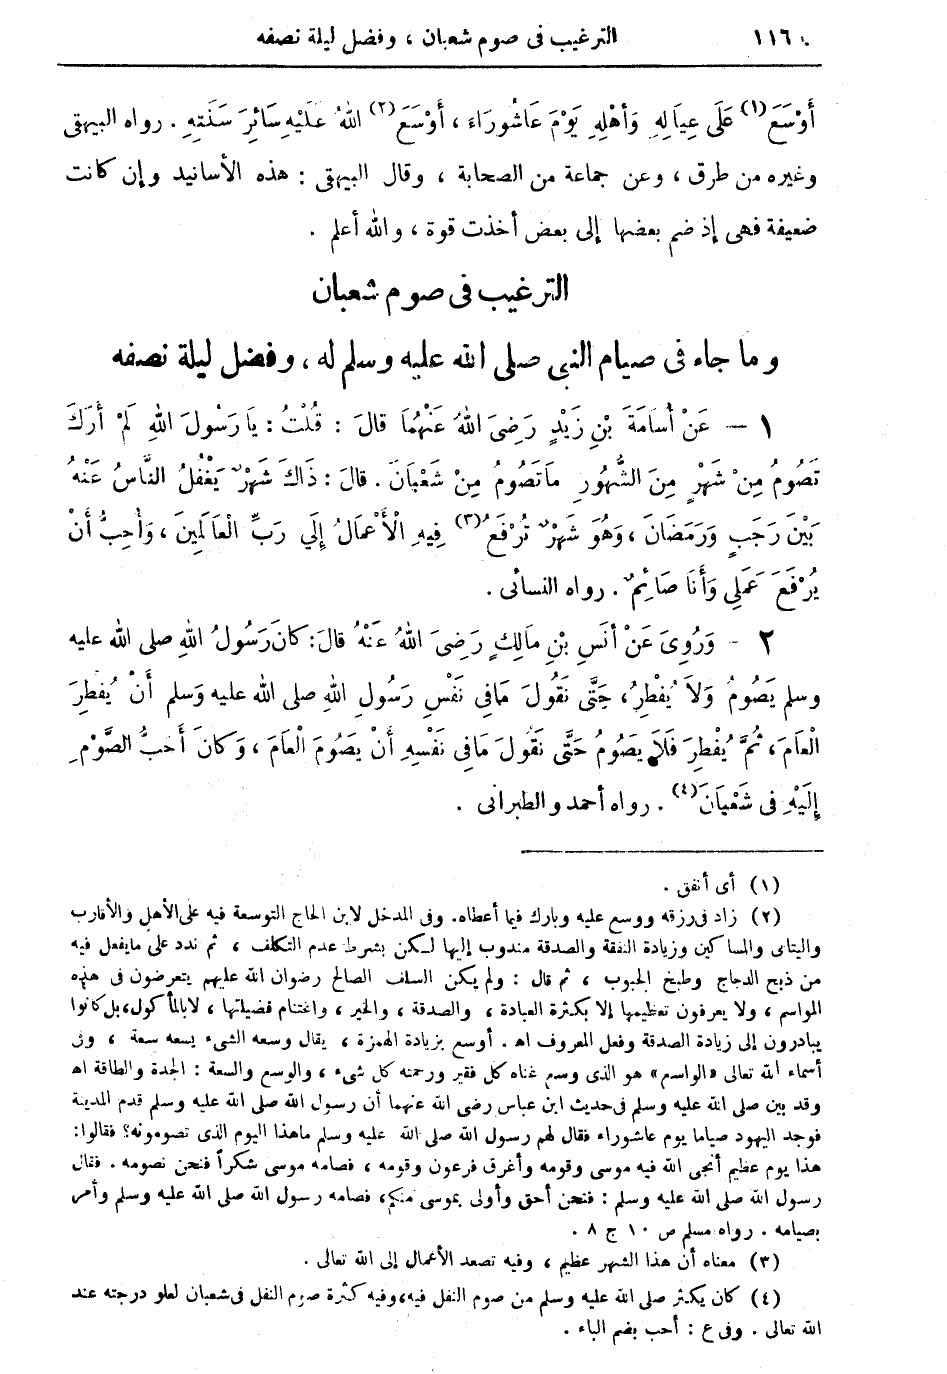 ١١٦ الترغيب فى صوم شعبان ، وفضل ليلة نصفه
أَوْسَعَ(١) عَلَى عِيَالِهِ وَأَهْلِهِ يَوْمَ عَاشُورَاءَ ، أَوْسَعَ(٢) اللهُ عَلَيْهِ سَائِرَ سَنَتِهِ . رواه البيهقى
وغيره من طرق ، وعن جماعة من الصحابة ، وقال البيهقى : هذه الأسانيد وإن كانت
ضعيفة فهى إذ ضم بعضها إلى بعض أخذت قوة ، والله أعلم .
الترغيب فى صوم شعبان
وما جاء فى صيام النبى صلى الله عليه وسلم له ، وفضل ليلة نصفه
١ — عَنْ أُسَامَةَ بْنِ زَيْدٍ رَضِىَ اللهُ عَنْهُمَا قالَ : قُلْتُ : يَا رَسُولَ اللهِ لَمْ أَرَكَ
تَصُومُ مِنْ شَهْرٍ مِنَ الشُّهُورِ مَاتَصُومُ مِنْ شَعْبَانَ . قالَ : ذَاكَ شَهْرٌ يَغْفُلُ النَّاسُ عَنْهُ
بَيْنَ رَجَبٍ وَرَمَضَانَ ، وَهُوَ شَهْرٌ تُرْفَعُ(٣) فِيهِ الْأَعْمَالُ إِلَي رَبِّ الْعَالَمِينَ ، وَأُحِبُّ أَنْ
يُرْفَعَ عَمَلِى وَأَنَا صَائِمٌ . رواه النسائى .
٢ - وَرُوِىَ عَنْ أَنَسِ بْنِ مَالِكٍ رَضِىَ اللهُ عَنْهُ قالَ : كانَ رَسُولُ اللهِ صلى الله عليه
وسلم يَصُومُ وَلاَ يُفْطِرُ ، حَتَّى نَقُولَ مَافِى نَفْسِ رَسُولِ اللهِ صلى الله عليه وَسلم أَنْ يُفْطِرَ
الْعَامَ ، ثُمَّ يُفْطِرَ فَلاَ يَصُومُ حَتَّى نَقُولَ مَافِى نَفْسِهِ أَنْ يَصُومَ الْعَامَ ، وَكانَ أَحَبُّ الصَّوْمِ
إِلَيْهِ فِى شَعْبَانَ(٤) . رواه أحمد والطبرانى .
(١) أى أنفق .
(٢) زاد فى رزقه ووسع عليه وبارك فيما أعطاه. وفى المدخل لابن الحاج التوسعة فيه على الأهل والأقارب
واليتامى والمساكين وزيادة النفقة والصدقة مندوب إليها لكن بشرط عدم التكلف ، ثم ندد على مايفعل فيه
من ذبح الدجاج وطبخ الحبوب ، ثم قال : ولم يكن السلف الصالح رضوان الله عليهم يتعرضون فى هذه
المواسم ، ولا يعرفون تعظيمها إلا بكثرة العبادة ، والصدقة ، والخير ، واغتنام فضيلتها ، لابالمأكول، بل كانوا
يبادرون إلى زيادة الصدقة وفعل المعروف اه . أوسع بزيادة الهمزة ، يقال وسعه الشىء يسعه سعة ، وفى
أسماء الله تعالى «الواسع» هو الذى وسع غناه كل فقير ورحمته كل شىء ، والوسع والسعة : الجدة والطاقة اه
وقد بين صلى الله عليه وسلم فى حديث ابن عباس رضى الله عنهما أن رسول الله صلى الله عليه وسلم قدم المدينة
فوجد اليهود صياما يوم عاشوراء فقال لهم رسول الله صلى الله عليه وسلم ماهذا اليوم الذى تصومونه؟ فقالوا:
هذا يوم عظيم أنجى الله فيه موسى وقومه وأغرق فرعون وقومه ، فصامه موسى شكراً فنحن نصومه . فقال
رسول الله صلى الله عليه وسلم : فنحن أحق وأولى بموسى منكم، فصامه رسول الله صلى الله عليه وسلم وأمر
بصيامه . رواه مسلم ص ١٠ ج ٨ .
(٣) معناه أن هذا الشهر عظيم ، وفيه تصعد الأعمال إلى الله تعالى .
(٤) كان يكثر صلى الله عليه وسلم من صوم النفل فيه، وفيه كثرة صوم النفل فى شعبان لعلو درجته عند
الله تعالى . وفى ع : أحب بضم الباء .